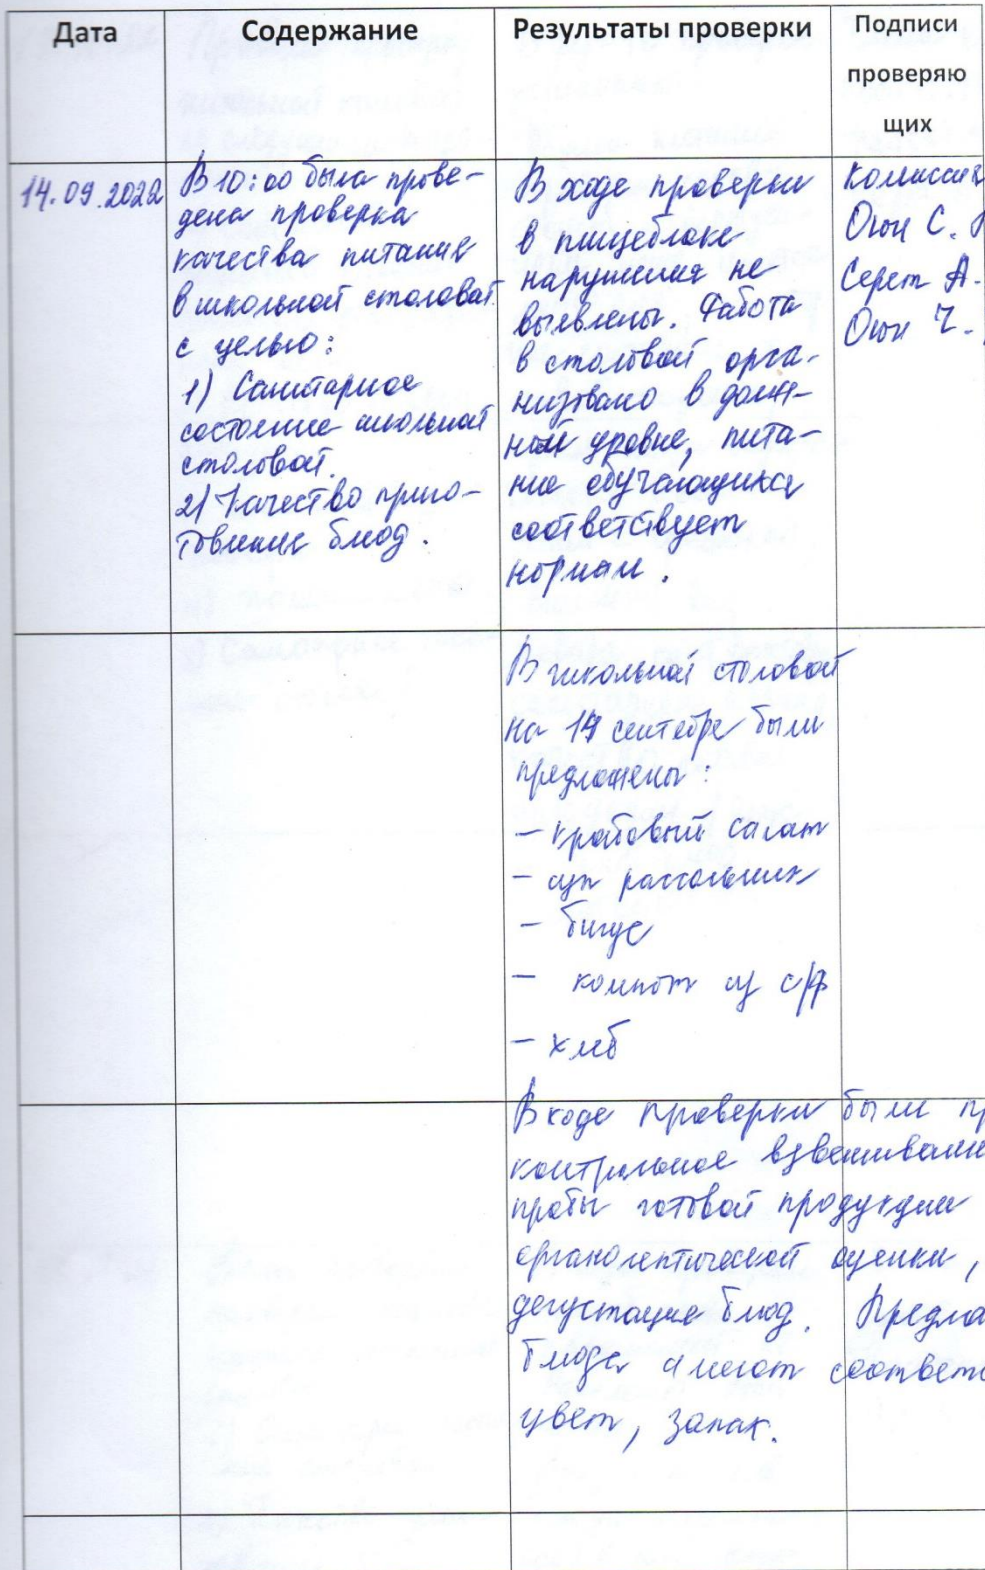 Дата
Содержание
Результаты проверки
Подписи
проверяю
щих
14.09.2022
В 10:00 была прове-
дена проверка
качества питания
в школьной столовой
с целью:
1) Санитарное
состояние школьной
столовой.
2) Качество приго-
товления блюд.
В ходе проверки
в пищеблоке
нарушения не
выявлены. Работа
в столовой орга-
низовано в долж-
ном уровне, пита-
ние обучающихся
соответствует
нормам.
Комиссия
Оюн С.
Серен А.
Оюн Ч.
В школьной столовой
на 14 сентября были
предложены:
- крабовый салат
- суп рассольник
- бигус
- компот из с/ф
- хлеб
В ходе проверки были пр
контрольное взвешивани
пробы готовой продукции
органолептической оценки,
дегустация блюд. Предла
блюда имеют соответс
цвет, запах.